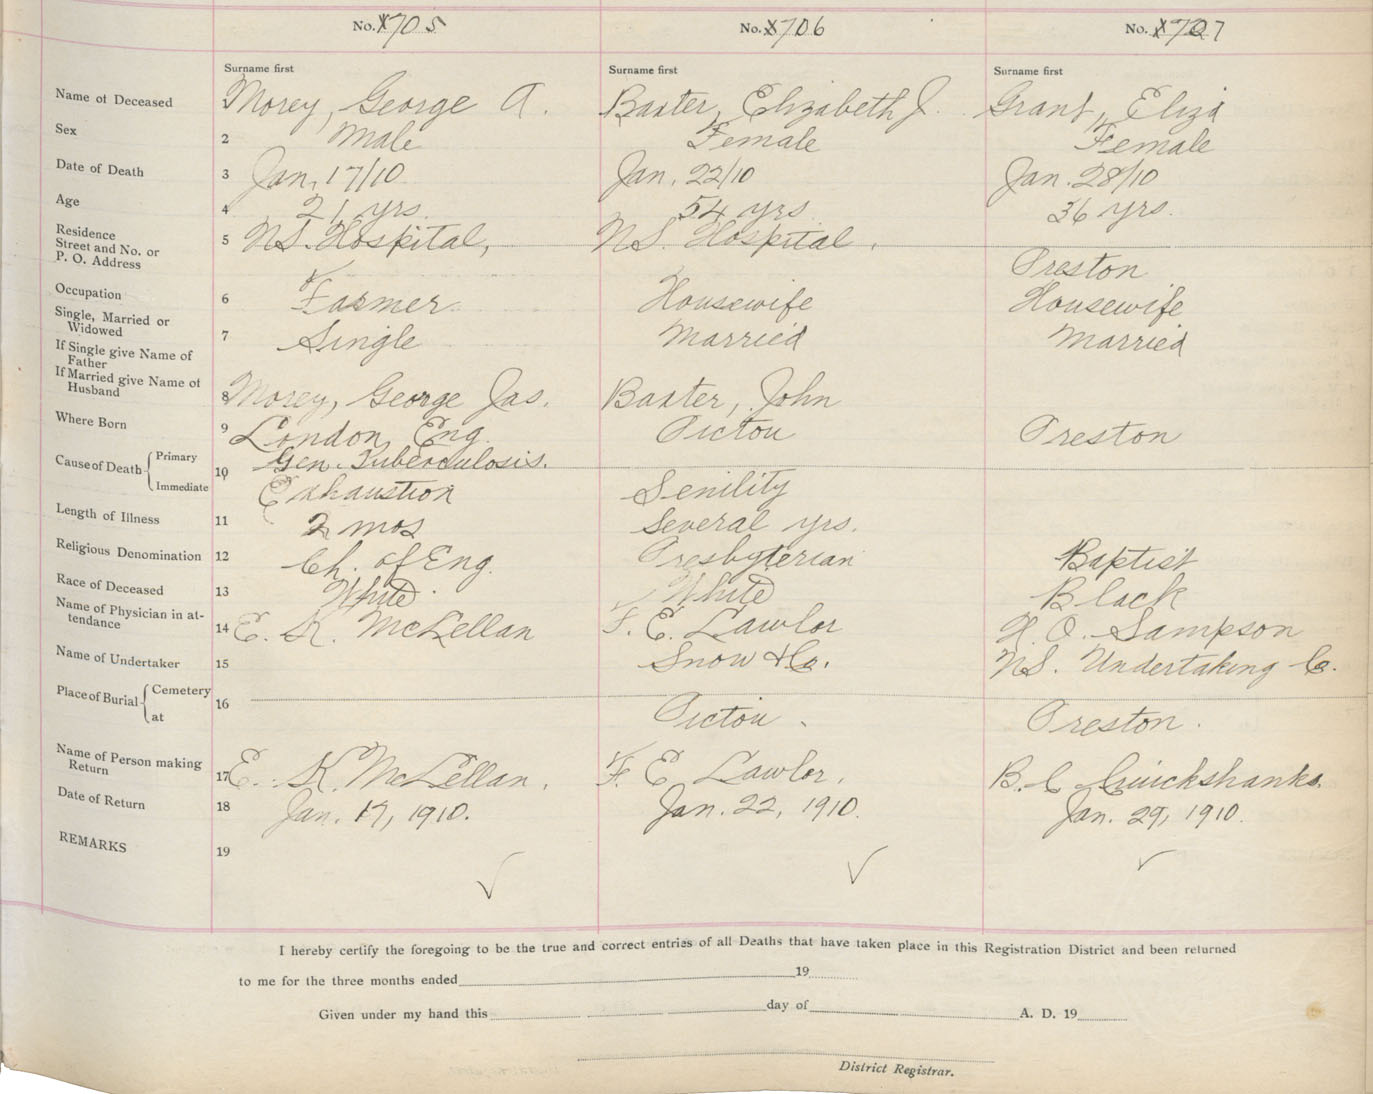 No. x705 No. x706 No. x707
Surname first Surname first Surname first
Name of Deceased 1 Morey, George A. Baxter, Elizabeth J. Grant, Eliza
Sex 2 Male Female Female
Date of Death 3 Jan. 17/10 Jan. 22/10 Jan. 28/10
Age 4 21 yrs. 54 yrs 36 yrs.
Residence
Street and No. or 5 N.S. Hospital, N.S. Hospital,
P. O. Address Preston
Occupation 6 Farmer Housewife Housewife
Single, Married or
Widowed 7 Single Married Married
If Single give Name of
Father
If Married give Name of
Husband 8 Morey, George Jas. Baxter, John
Where Born 9 London, Eng. Pictou Preston
Cause of Death Primary 10 Gen. Tuberculosis.
Immediate Exhaustion Senility
Length of Illness 11 2 mos Several yrs.
Religious Denomination 12 Ch. of Eng. Presbyterian Baptist
Race of Deceased 13 White White Black
Name of Physician in at-
tendance 14 E. K. McLellan F. E. Lawlor H. O. Sampson
Name of Undertaker 15 Snow & Co. N.S. Undertaking Co.
Place of Burial Cemetery 16
at Pictou Preston.
Name of Person making
Return 17 E. K. McLellan. F. E. Lawlor. B. C. Cruickshanks.
Date of Return 18 Jan. 17, 1910. Jan. 22, 1910. Jan. 29, 1910.
REMARKS 19
I hereby certify the foregoing to be the true and correct entries of all Deaths that have taken place in this Registration District and been returned
to me for the three months ended 19
Given under my hand this day of A. D. 19
District Registrar.